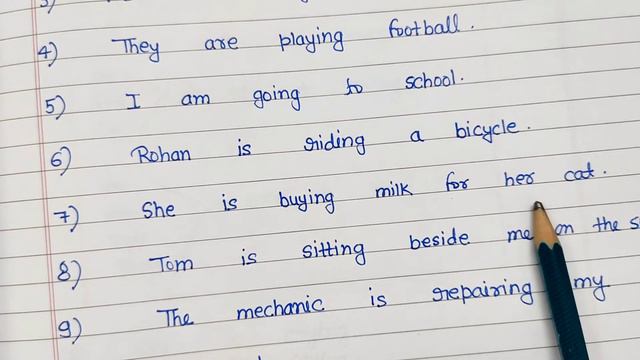 4) They are playing football.
5) I am going to school.
6) Rohan is riding a bicycle.
7) She is buying milk for her cat.
8) Tom is sitting beside me on the
9) The mechanic is repairing my